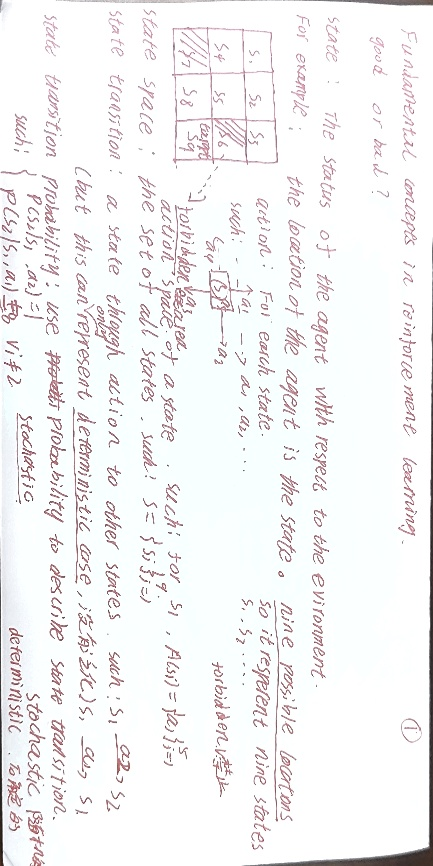 ①
Fundamental concepts in reinforcement learning.
good or bad?
state : The status of the agent with respect to the evironment.
For example : the location of the agent is the state. nine possible locations
so it represent nine states
s1, s2 ....
s1 s2 s3
s4 s5 s6
s7 s8 target s9
forbidden area
action : For each state.
such: a1, a2, ...
a1
a4 s1 a2
forbidden
action space of a state . such: for s1, A(s1) = {ai}⁵i=1
state space : the set of all states. such: S = {si}⁹i=1
state transition : a state though action to other states. such: s1 a2→ s2
(but this can only represent deterministic case, s1 a1→ s1
state transition probability : use probability to describe state transition.
such: { p(s2|s1, a2) = 1
p(si|s1, a2) = 0 ∀i≠2
stochastic
stochastic
deterministic